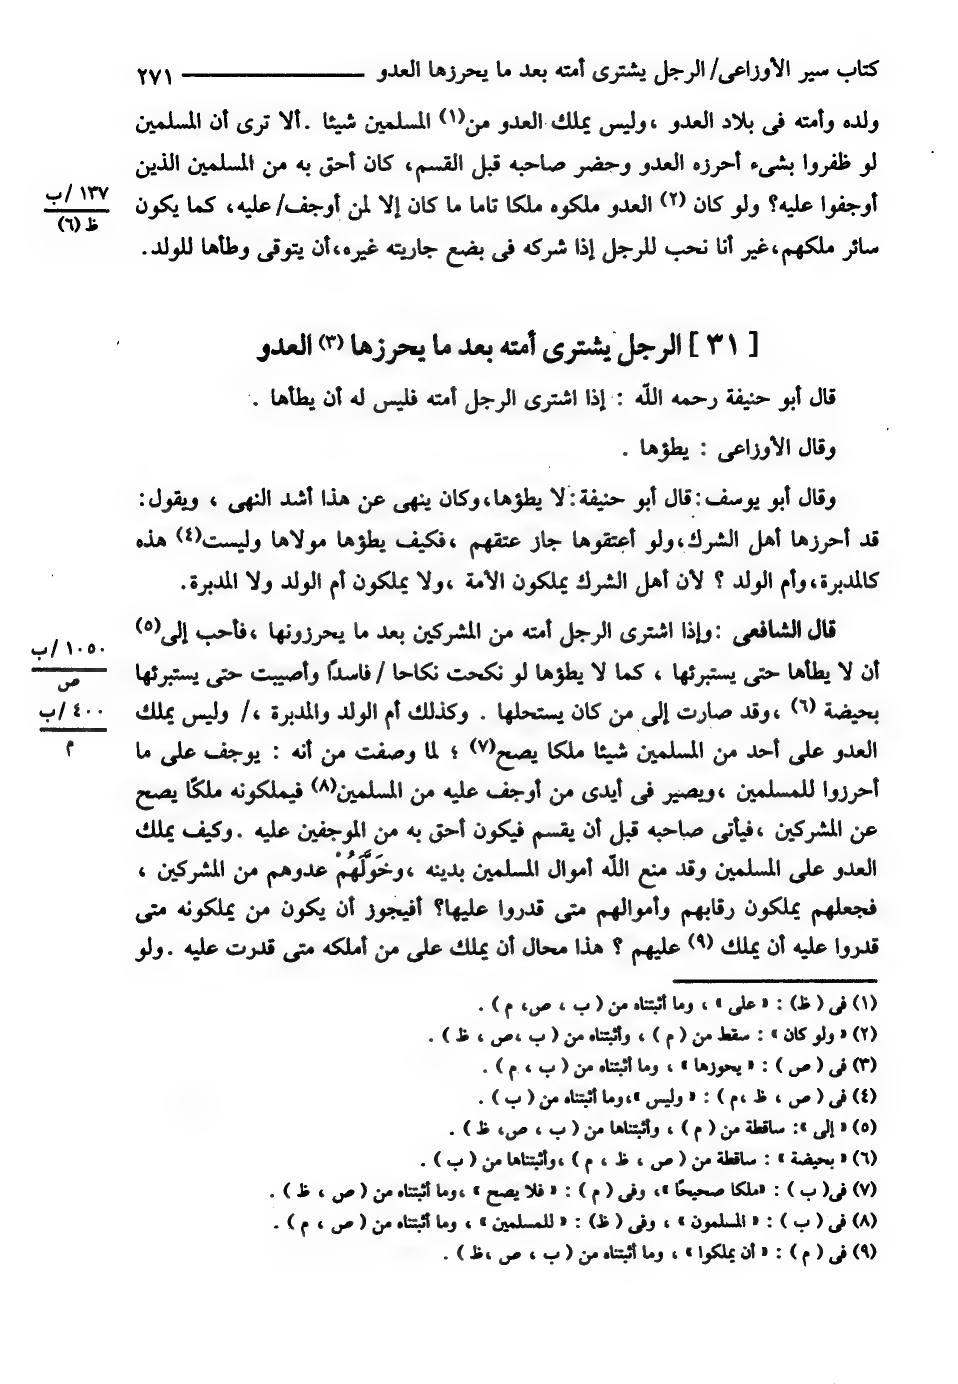 كتاب سير الأوزاعى/ الرجل يشترى أمته بعد ما يحرزها العدو ــــــــــــــ ٢٧١
ولده وأمته فى بلاد العدو ، وليس يملك العدو من(١) المسلمين شيئا . ألا ترى أن المسلمين
لو ظفروا بشىء أحرزه العدو وحضر صاحبه قبل القسم، كان أحق به من المسلمين الذين
أوجفوا عليه؟ ولو كان (٢) العدو ملكوه ملكا تاما ما كان إلا لمن أوجف/ عليه، كما يكون
١٣٧ /ب
ظ (٦)
سائر ملكهم،غير أنا نحب للرجل إذا شركه فى بضع جاريته غيره،أن يتوقى وطأها للولد.
[ ٣١ ] الرجل يشترى أمته بعد ما يحرزها (٣) العدو
قال أبو حنيفة رحمه الله : إذا اشترى الرجل أمته فليس له أن يطأها .
وقال الأوزاعى : يطؤها .
وقال أبو يوسف:قال أبو حنيفة:لا يطؤها،وكان ينهى عن هذا أشد النهى ، ويقول:
قد أحرزها أهل الشرك،ولو أعتقوها جاز عتقهم ،فكيف يطؤها مولاها وليست(٤) هذه
كالمدبرة،وأم الولد ؟ لأن أهل الشرك يملكون الأمة ،ولا يملكون أم الولد ولا المدبرة.
قال الشافعى :وإذا اشترى الرجل أمته من المشركين بعد ما يحرزونها ،فأحب إلى(٥)
أن لا يطأها حتى يستبرئها ، كما لا يطؤها لو نكحت نكاحا /فاسدًا وأصيبت حتى يستبرئها
١٠٥٠ /ب
ص
بحيضة (٦) ،وقد صارت إلى من كان يستحلها . وكذلك أم الولد والمدبرة ،/ وليس يملك
٤٠٠ /ب
م
العدو على أحد من المسلمين شيئا ملكا يصح(٧) ؛ لما وصفت من أنه : يوجف على ما
أحرزوا للمسلمين ،ويصير فى أيدى من أوجف عليه من المسلمين(٨) فيملكونه ملكًا يصح
عن المشركين ،فيأتى صاحبه قبل أن يقسم فيكون أحق به من الموجفين عليه .وكيف يملك
العدو على المسلمين وقد منع الله أموال المسلمين بدينه ،وخَوَّلَهُمْ عدوهم من المشركين ،
فجعلهم يملكون رقابهم وأموالهم متى قدروا عليها؟ أفيجوز أن يكون من يملكونه متى
قدروا عليه أن يملك (٩) عليهم ؟ هذا محال أن يملك على من أملكه متى قدرت عليه .ولو
(١) فى ( ظ) : « على » ، وما أثبتناه من ( ب ، ص، م ) .
(٢) « ولو كان » : سقط من ( م ) ، وأثبتناه من ( ب ،ص ، ظ ) .
(٣) فى ( ص ) : « يحوزها » ، وما أثبتناه من ( ب ، م ) .
(٤) فى ( ص ، ظ ،م ) : « وليس »،وما أثبتناه من ( ب ) .
(٥) « إلى »: ساقطة من ( م ) ، وأثبتناها من ( ب ، ص، ظ ) .
(٦) « بحيضة » : ساقطة من ( ص ، ظ ، م ) ،وأثبتناها من ( ب ) .
(٧) فى( ب ) : «ملكا صحيحًا »، وفى ( م ) : « فلا يصح » ،وما أثبتناه من ( ص ، ظ ) .
(٨) فى ( ب ) : « المسلمون » ، وفى ( ظ) : « للمسلمين » ، وما أثبتناه من ( ص ، م ) .
(٩) فى ( م ) : « أن يملكوا » ، وما أثبتناه من ( ب ، ص ،ظ ) .